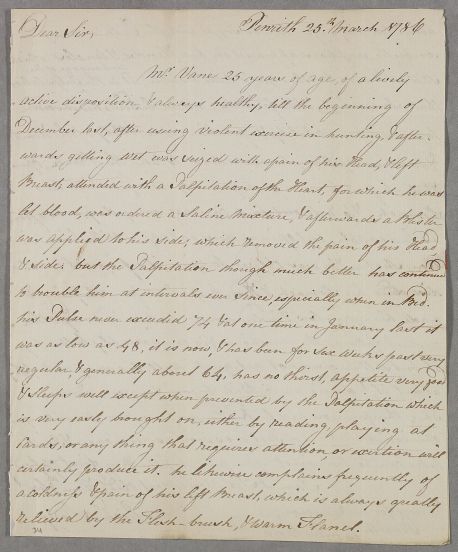 Dear Sir, Penrith 25.th March 1786
Mr. Vane 25 years of age, of a lively
active disposition, & always healthy, till the beginning of
December last, after using violent exercise in hunting, & after-
wards getting wet was seized with a pain of his Head, & left
Breast, attended with a Palpitation of the Heart, for which he was
let blood, was ordered a Saline Mixture, & afterwards a Blister
was applied to his side; which removed the pain of his Head
& side: but the Palpitation though much better has continued
to trouble him at intervals ever since, especially when in Bed.
his Pulse never exceeded 74 & at one time in January last it
was as low as 48, it is now, & has been for six weeks past very
regular, & generally about 64, has no thirst, appetite very good
& sleeps well except when prevented by the Palpitation which
is very easly brought on, either by reading, playing at
Cards, or any thing that requires attention, or exertion will
certainly produce it. he likewise complains frequently of
a coldness & pain of his left Breast, which is always greatly
relieved by the Flesh-brush, & warm Flanel.
24